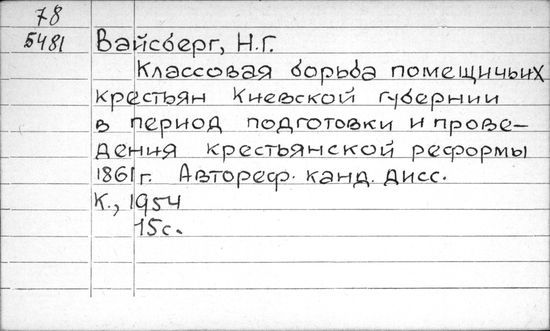 78
5481 Вайсберг, Н.Г.
Классовая борьба помещичьих
крестьян Киевской губернии
в период подготовки и прове-
дения крестьянской реформы
1861г. Автореф. канд. дисс.
К., 1954
15с.